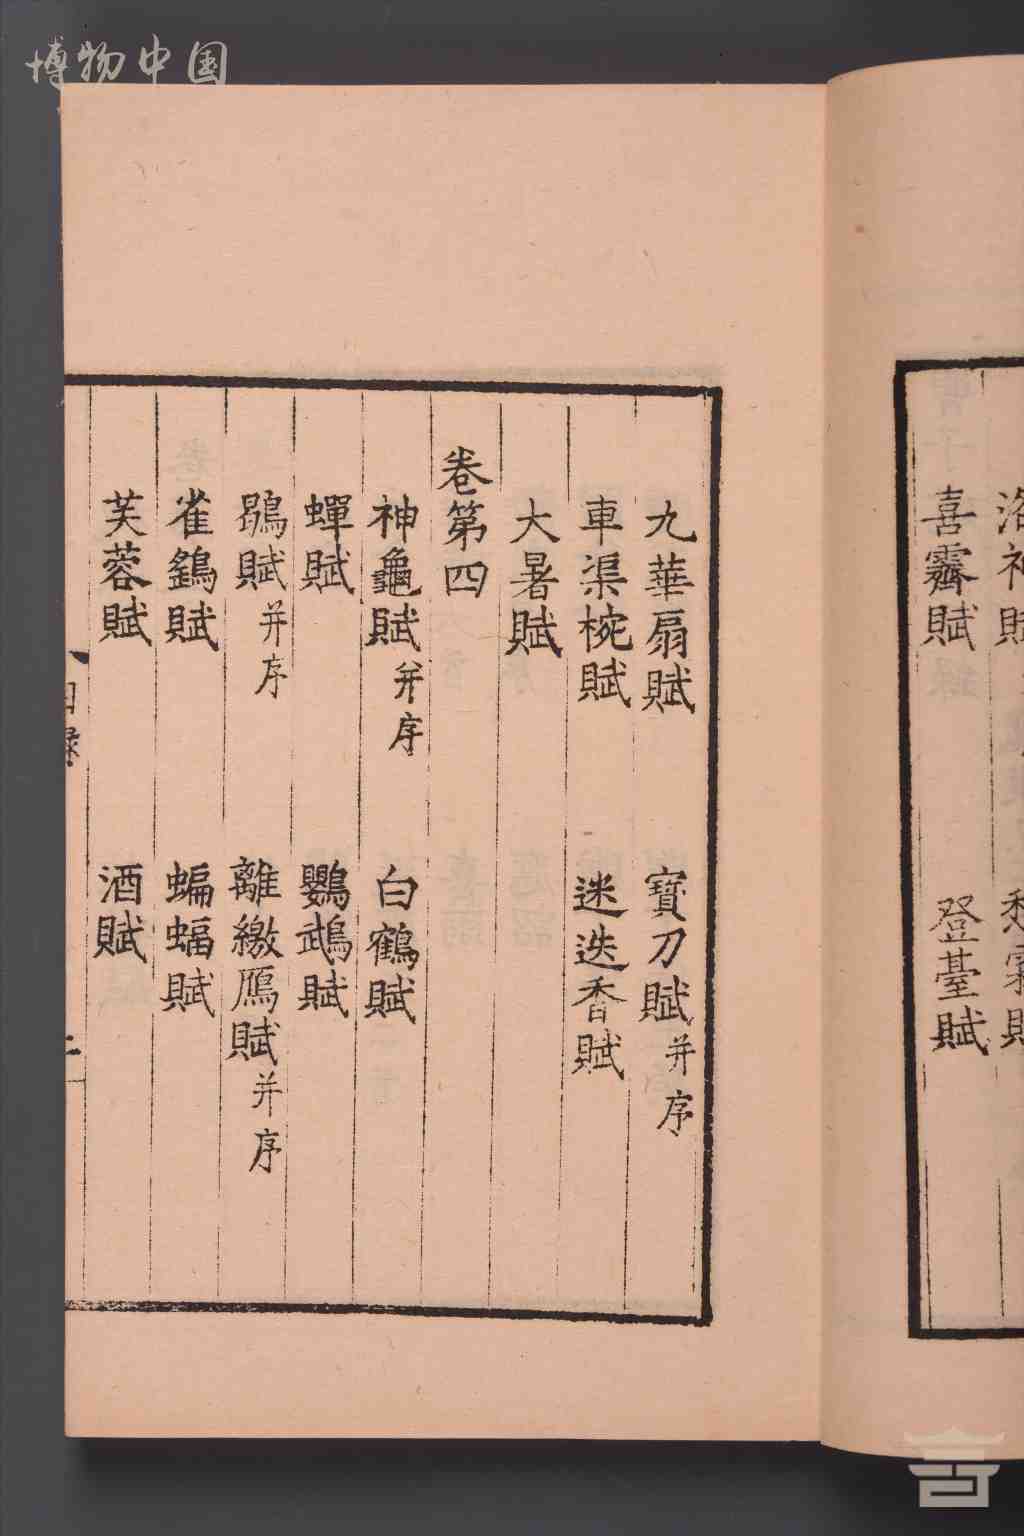 博物中国
洛神賦
愁霖賦
喜霽賦
登臺賦
九華扇賦
寶刀賦并序
車渠椀賦
迷迭香賦
大暑賦
卷第四
神龜賦并序
白鶴賦
蟬賦
鸚鵡賦
鶡賦并序
離繳鴈賦并序
雀鷂賦
蝙蝠賦
芙蓉賦
酒賦
目錄